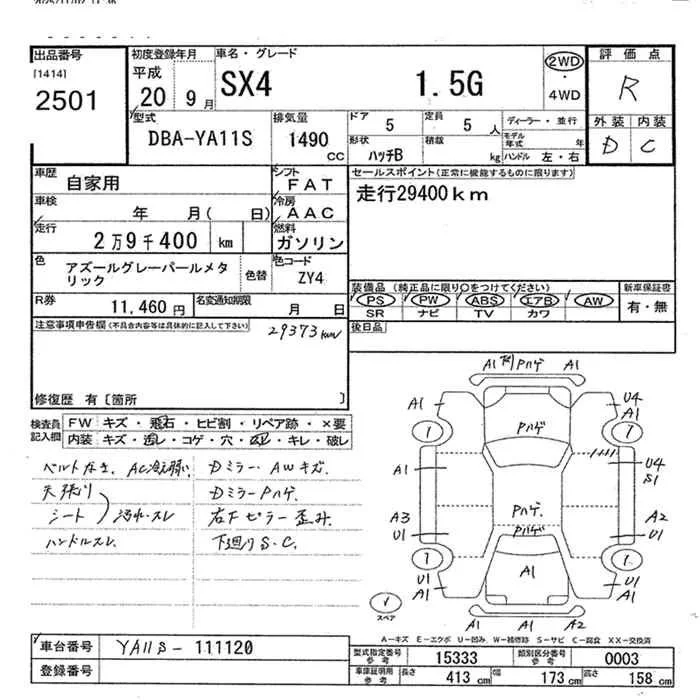 出品番号
[1414]
2501
初度登録年月
平成
20 9月
車名・グレード
SX4 1.5G
2WD
・
4WD
評価点
R
外装 内装
D C
型式
DBA-YA11S
排気量
1490
CC
ドア
5
定員
5 人
形状
ハッチB
積載
kg
ディーラー・並行
モデル年式 年
ハンドル 左・右
車歴
自家用
シフト
FAT
車検
年 月( 日)
冷房
AAC
走行
2万9千400 km
燃料
ガソリン
色
アズールグレーパールメタリック
色替
色コード
ZY4
R券
11,460 円
名変通知期限
月 日
セールスポイント(正常に機能するものに限ります)
走行29400km
装備品 (純正品に限り○をつけてください)
PS PW ABS エアB AW
SR ナビ TV カワ
新車保証書
有・無
後日品
注意事項申告欄(不具合内容等は具体的に記入して下さい)
29373km
修復歴 有 [箇所 ]
検査員記入欄
FW キズ・飛石・ヒビ割・リペア跡・×要
内装 キズ・汚レ・コゲ・穴・・キレ・破し
ベルトなき、AC冷え弱い Dミラー・AWキズ.
天張り DミラーPハゲ.
シート 汚れ・スレ 右下ピラー歪み.
ハンドルスレ. 下廻りS.C.
A1 Pハゲ A1
A1 U4
A1
Pハゲ
A1 U4
S1
A3 Pハゲ. A2
U1 Pハゲ U1
U1 A1 U1
A1 A1
A1 A1 A2
スペア
A-キズ E-エクボ U-凹み W-補修跡 S-サビ C-腐食 XX-交換済
車台番号
YA11S-111120
登録番号
型式指定番号
参考
15333
類別区分番号
参考
0003
車庫証明用
参考
長さ 413 cm 幅 173 cm 高さ 158 cm